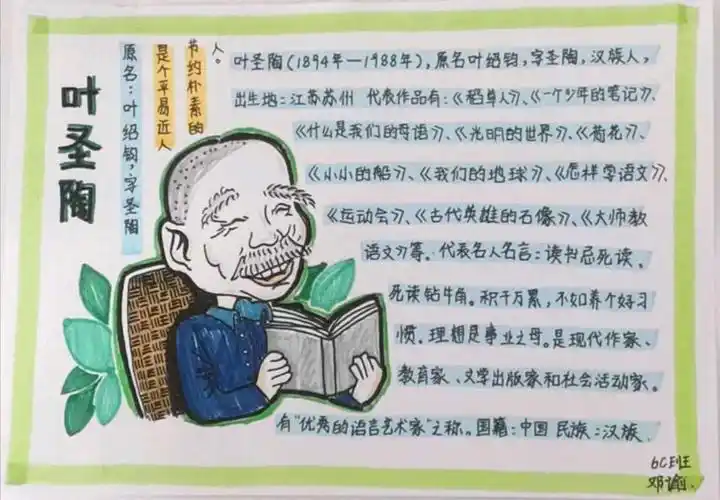 叶圣陶
原名：叶绍钧，字圣陶
是个平易近人
节约朴素的
人。
叶圣陶(1894年—1988年)，原名叶绍钧，字圣陶，汉族人，
出生地：江苏苏州 代表作品有：《稻草人》、《一个少年的笔记》、
《什么是我们的母语》、《光明的世界》、《荷花》、
《小小的船》、《我们的地球》、《怎样学语文》、
《运动会》、《古代英雄的石像》、《大师教
语文》等。代表名人名言：读书忌死读，
死读钻牛角。积千万累，不如养个好习
惯。理想是事业之母。是现代作家、
教育家、文学出版家和社会活动家。
有“优秀的语言艺术家”之称。国籍：中国 民族：汉族.
6C班
邓谕.